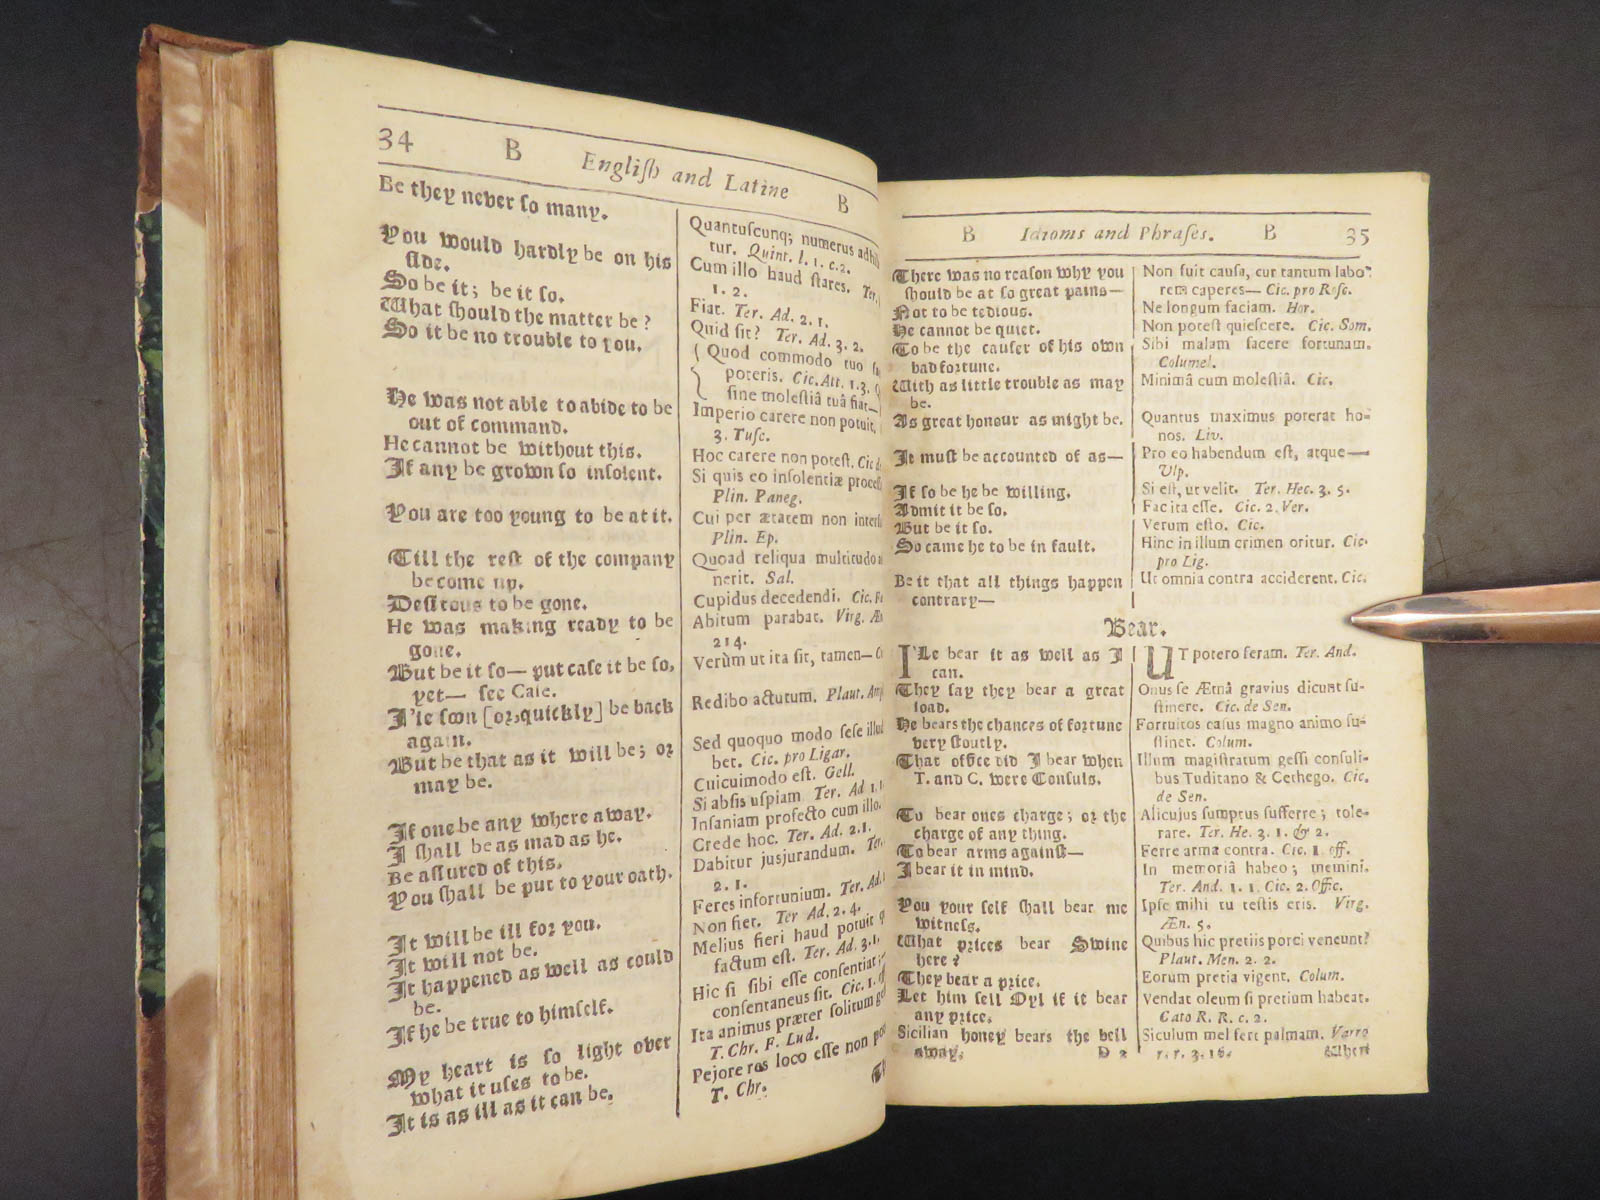 34 B Engliſh and Latine B
Be they never ſo many.
You would hardly be on his
ſide.
So be it; be it ſo.
What ſhould the matter be?
So it be no trouble to you.
He was not able to abide to be
out of command.
He cannot be without this.
If any be grown ſo inſolent.
You are too young to be at it.
Till the reſt of the company
become up.
Deſirous to be gone.
He was making ready to be
gone.
But be it ſo— put caſe it be ſo,
yet— ſee Caſe.
I'le ſoon [or, quickly] be back
again.
But be that as it will be; or
may be.
If one be any where away.
I ſhall be as mad as he.
Be aſſured of this.
You ſhall be put to your oath.
It will be ill for you.
It will not be.
It happened as well as could
be.
If he be true to himſelf.
My heart is ſo light over
what it uſes to be.
It is as ill as it can be.
Quantuſcunq; numerus adhib
tur. Quint. l. 1. c. 2.
Cum illo haud ſtares. Ter.
1. 2.
Fiat. Ter. Ad. 2. 1.
Quid ſit? Ter. Ad. 3. 2.
Quod commodo tuo
poteris. Cic. Att. 1. 3.
ſine moleſtiâ tuâ fiat—
Imperio carere non potuit.
3. Tuſc.
Hoc carere non poteſt. Cic
Si quis eo inſolentiæ proceſſ
Plin. Paneg.
Cui per ætatem non interſ
Plin. Ep.
Quoad reliqua multitudo
nerit. Sal.
Cupidus decedendi. Cic.
Abitum parabat. Virg. Æn
214.
Verùm ut ita ſit, tamen—
Redibo actutum. Plaut. Am
Sed quoquo modo ſeſe illud
bet. Cic. pro Ligar.
Cuicuimodo eſt. Gell.
Si abſis uſpiam. Ter. Ad 1. 1
Inſaniam profecto cum illo.
Crede hoc. Ter. Ad. 2. 1.
Dabitur jusjurandum. Ter.
2. 1.
Feres infortunium. Ter. Ad.
Non fiet. Ter Ad. 2. 4.
Melius fieri haud potuit q
factum eſt. Ter. Ad. 3. 1.
Hic ſi ſibi eſſe conſentiat;
conſentaneus ſit. Cic. 1.
Ita animus præter ſolitum
T. Chr. F. Lud.
Pejore res loco eſſe non po
T. Chr.
B Idioms and Phraſes. B 35
There was no reaſon why you
ſhould be at ſo great pains—
Not to be tedious.
He cannot be quiet.
To be the cauſer of his own
bad fortune.
With as little trouble as may
be.
As great honour as might be.
It muſt be accounted of as—
If ſo be he be willing.
Admit it be ſo.
But be it ſo.
So came he to be in fault.
Be it that all things happen
contrary—
Non fuit cauſa, cur tantum labo-
rem caperes— Cic. pro Roſc.
Ne longum faciam. Hor.
Non poteſt quieſcere. Cic. Som.
Sibi malam facere fortunam.
Columel.
Minimâ cum moleſtiâ. Cic.
Quantus maximus poterat ho-
nos. Liv.
Pro eo habendum eſt, atque—
Ulp.
Si eſt, ut velit. Ter. Hec. 3. 5.
Fac ita eſſe. Cic. 2. Ver.
Verum eſto. Cic.
Hinc in illum crimen oritur. Cic.
pro Lig.
Ut omnia contra acciderent. Cic.
Bear.
I'Le bear it as well as I
can.
They ſay they bear a great
load.
He bears the chances of fortune
very ſtoutly.
That office did I bear when
T. and C. were Conſuls.
To bear ones charge; or the
charge of any thing.
To bear arms againſt—
I bear it in mind.
You your ſelf ſhall bear me
witneſs.
What prices bear Swine
here?
They bear a price.
Let him ſell Oyl if it bear
any price.
Sicilian honey bears the bell
away.
D 2
UT potero feram. Ter. And.
Onus ſe Ætnâ gravius dicunt ſu-
ſtinere. Cic. de Sen.
Fortuitos caſus magno animo ſu-
ſtinet. Colum.
Illum magiſtratum geſſi conſuli-
bus Tuditano & Cethego. Cic.
de Sen.
Alicujus ſumptus ſufferre; tole-
rare. Ter. He. 3. 1. & 2.
Ferre arma contra. Cic. 1. off.
In memoriâ habeo; memini.
Ter. And. 1. 1. Cic. 2. Offic.
Ipſe mihi tu teſtis eris. Virg.
Æn. 5.
Quibus hic pretiis porci veneunt?
Plaut. Men. 2. 2.
Eorum pretia vigent. Colum.
Vendat oleum ſi pretium habeat.
Cato R. R. c. 2.
Siculum mel fert palmam. Varro
r. r. 3. 16.
When